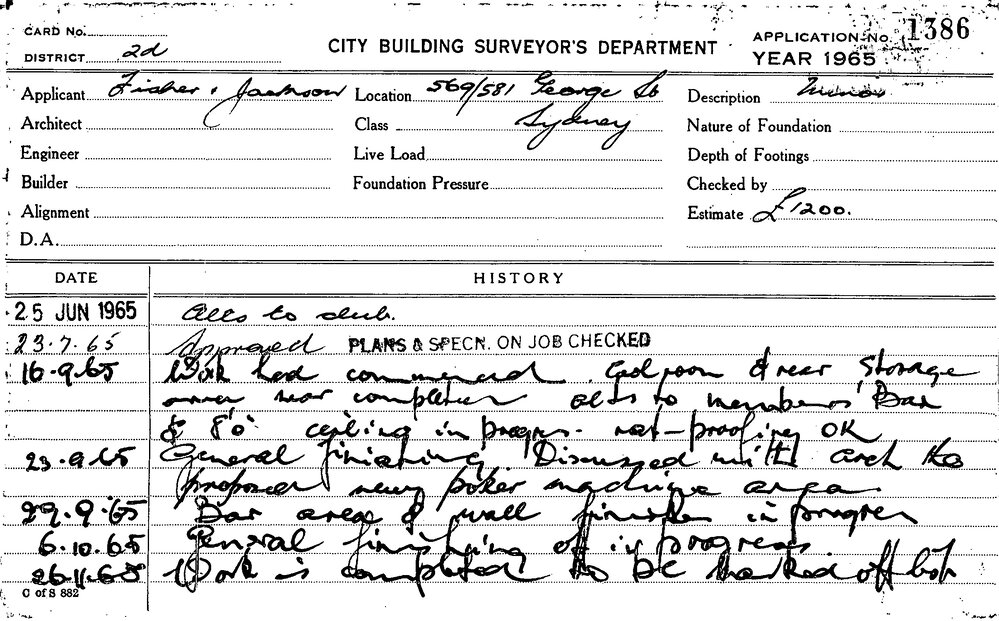 CARD No.
DISTRICT 2d
CITY BUILDING SURVEYOR'S DEPARTMENT
APPLICATION No. 1386
YEAR 1965
Applicant Fisher & Jackson Location 569/581 George St Description Minor
Architect Class Sydney Nature of Foundation
Engineer Live Load Depth of Footings
Builder Foundation Pressure Checked by
Alignment Estimate £1200.
D.A.
DATE HISTORY
25 JUN 1965 Alts to club.
23.7.65 Approved PLANS & SPECN. ON JOB CHECKED
16.9.65 Work had commenced. room & rear Storage
area near completion alts to members' Bar
& 8'0 ceiling in progress - rat-proofing OK
23.9.65 General finishing. Discussed with arch the
proposed new poker machine area.
29.9.65 Bar area & wall finishes in progress
6.10.65 General finishing off in progress
26.11.65 Work is completed to be marked off
C of S 882